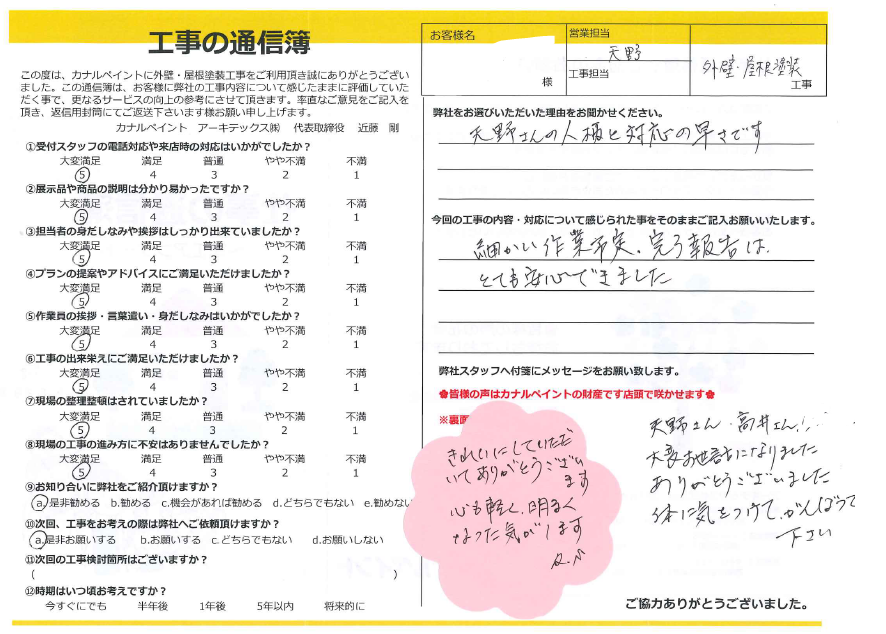 工事の通信簿
この度は、カナルペイントに外壁・屋根塗装工事をご利用頂き誠にありがとうござい
ました。この通信簿は、お客様に弊社の工事内容について感じたままに評価していた
だく事で、更なるサービスの向上の参考にさせて頂きます。率直なご意見をご記入を
頂き、返信用封筒にてご返送下さいます様お願い申し上げます。
カナルペイント アーキテックス㈱ 代表取締役 近藤 剛
①受付スタッフの電話対応や来店時の対応はいかがでしたか?
大変満足 満足 普通 やや不満 不満
5 4 3 2 1
②展示品や商品の説明は分かり易かったですか?
大変満足 満足 普通 やや不満 不満
5 4 3 2 1
③担当者の身だしなみや挨拶はしっかり出来ていましたか?
大変満足 満足 普通 やや不満 不満
5 4 3 2 1
④プランの提案やアドバイスにご満足いただけましたか?
大変満足 満足 普通 やや不満 不満
5 4 3 2 1
⑤作業員の挨拶・言葉遣い・身だしなみはいかがでしたか?
大変満足 満足 普通 やや不満 不満
5 4 3 2 1
⑥工事の出来栄えにご満足いただけましたか?
大変満足 満足 普通 やや不満 不満
5 4 3 2 1
⑦現場の整理整頓はされていましたか?
大変満足 満足 普通 やや不満 不満
5 4 3 2 1
⑧現場の工事の進み方に不安はありませんでしたか?
大変満足 満足 普通 やや不満 不満
5 4 3 2 1
⑨お知り合いに弊社をご紹介頂けますか?
a.是非勧める b.勧める c.機会があれば勧める d.どちらでもない e.勧めない
⑩次回、工事をお考えの際は弊社へご依頼頂けますか?
a.是非お願いする b.お願いする c.どちらでもない d.お願いしない
⑪次回の工事検討箇所はございますか?
( )
⑫時期はいつ頃お考えですか?
今すぐにでも 半年後 1年後 5年以内 将来的に
お客様名
様
営業担当
天野
工事担当
外壁・屋根塗装
工事
弊社をお選びいただいた理由をお聞かせください。
天野さんの人柄と対応の早さです
今回の工事の内容・対応について感じられた事をそのままご記入お願いいたします。
細かい作業予定、完了報告は、
とても安心できました
弊社スタッフへ付箋にメッセージをお願い致します。
✿皆様の声はカナルペイントの財産です店頭で咲かせます✿
※裏面
きれいにしていただ
いてありがとうござい
ます
心も軽く、明るく
なった気がします
天野さん・高井さん!!
大変お世話になりました
ありがとうございました
体に気をつけて、がんばって
下さい
ご協力ありがとうございました。